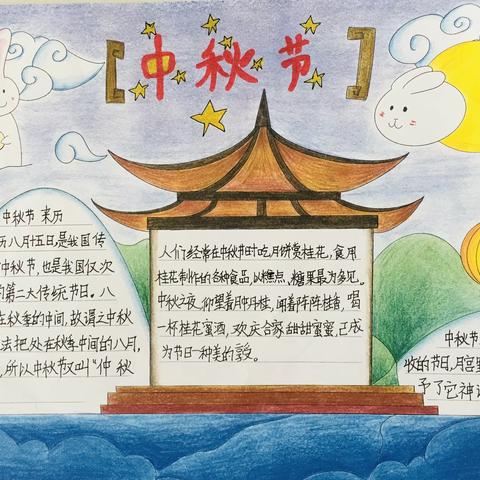 中秋节
中秋节 来历
历八月十五日,是我国传
中秋节,也是我国仅次
的第二大传统节日。八
在秋季的中间,故谓之中秋
去把处在秋季中间的八月,
,所以中秋节又叫“仲秋
人们经常在中秋节时吃月饼赏桂花,食用
桂花制作的各种食品,以糕点、糖果最为多见。
中秋之夜,仰望着月中丹桂,闻着阵阵桂香,喝
一杯桂花蜜酒,欢庆合家甜甜蜜蜜,已成
为节日一种美的享受。
中秋节
收的节日,月宫里
予了它神